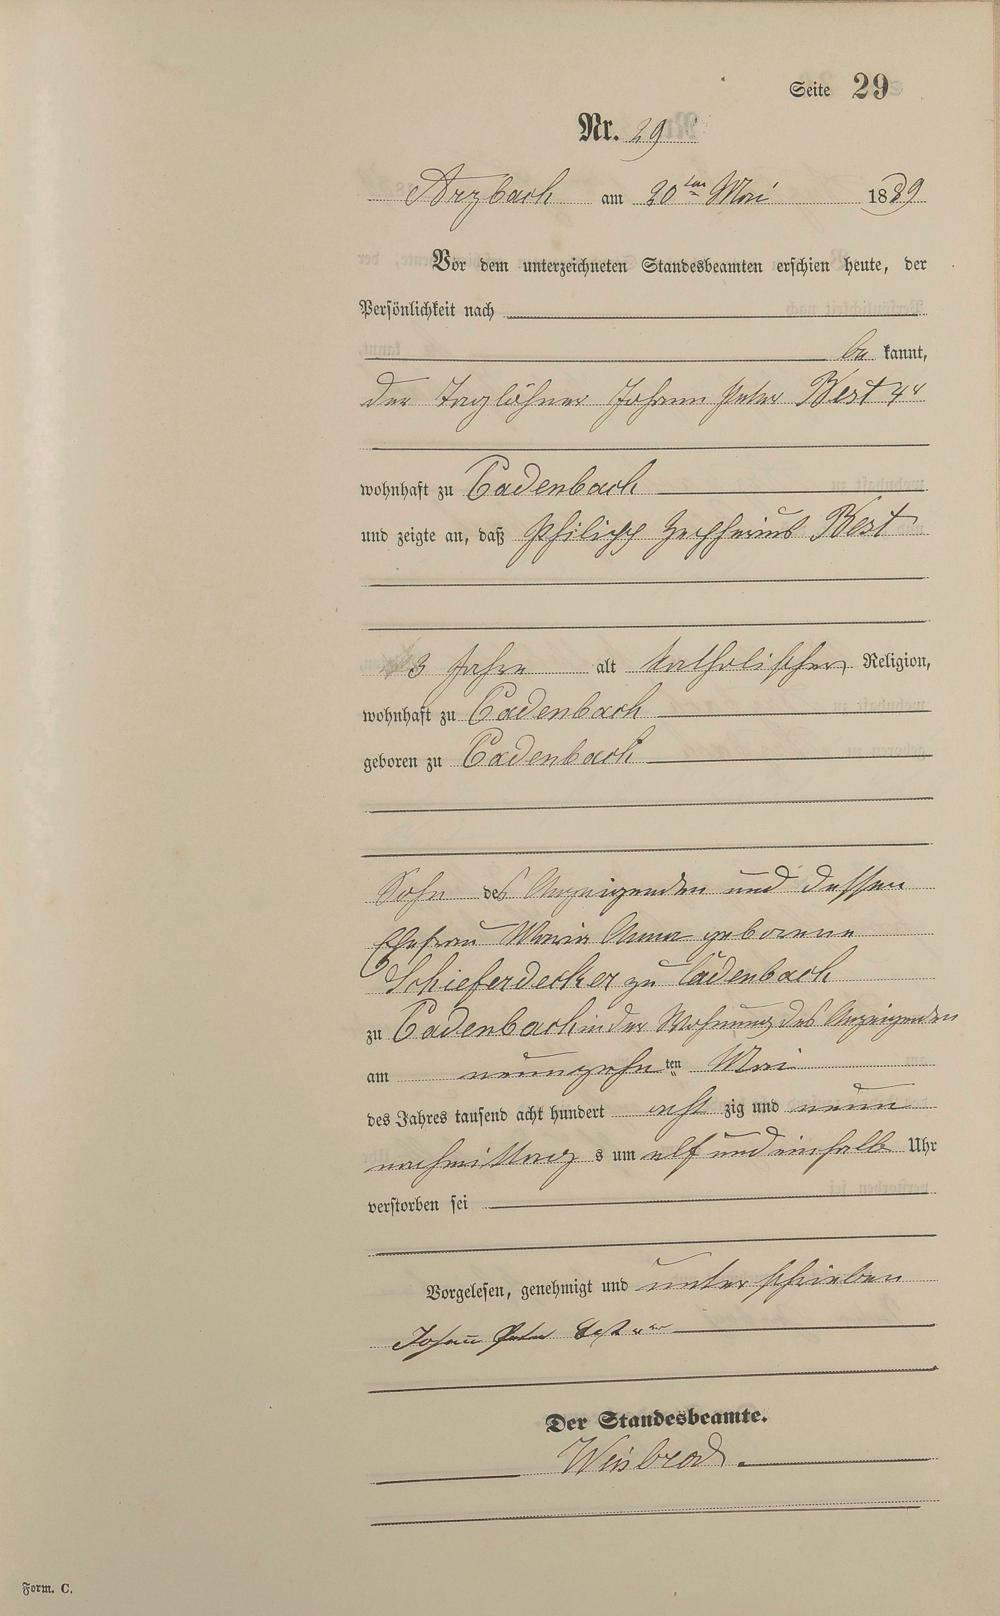 Seite 29
Nr. 29
Arzbach am 20ten Mai 1889
Vor dem unterzeichneten Standesbeamten erschien heute, der
Persönlichkeit nach
be kannt,
der Taglöhner Johann Peter Best 4r
wohnhaft zu Cadenbach
und zeigte an, daß Philipp Zephirins Best
3 Jahre alt katholischer Religion,
wohnhaft zu Cadenbach
geboren zu Cadenbach
Sohn des Anzeigenden und dessen
Ehefrau Maria Anna geborene
Schieferdecker zu Cadenbach
zu Cadenbach in der Wohnung des Anzeigenden
am neunzehnten Mai
des Jahres tausend acht hundert acht zig und neun
nachmittag s um elf und einhalb Uhr
verstorben sei
Vorgelesen, genehmigt und unterschrieben
Johann Peter Best
Der Standesbeamte.
Weisbrod
Form. C.